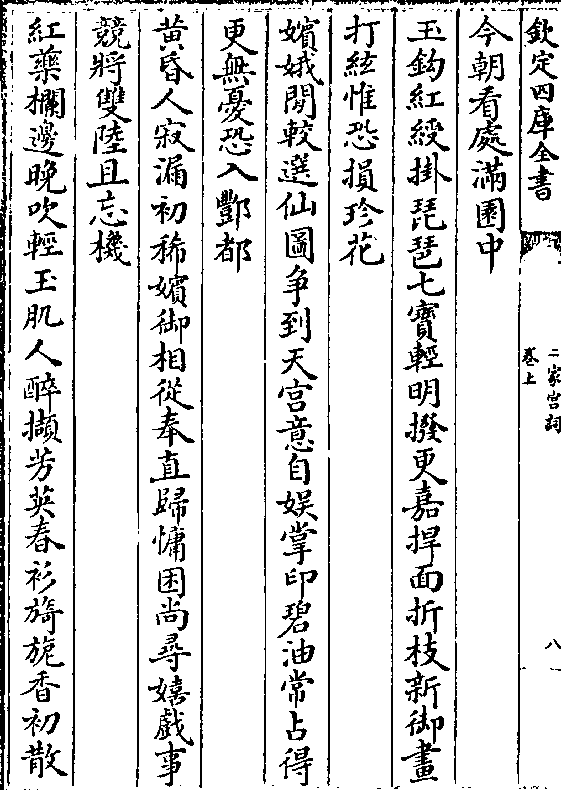 欽定四庫全書
二家宮詞
卷上
八
今朝看處滿園中
玉鈎紅綬掛琵琶七寶輕明撥更嘉捍面折枝新御畫
打絃惟恐損珍花
嬪娥閒較選仙圖爭到天宮意自娛掌印碧油常占得
更無憂恐入酆都
黄昏人寂漏初稀嬪御相從奉直歸慵困尚尋嬉戲事
競將雙陸且忘機
紅藥欄邊晚吹輕玉肌人醉擷芳英春衫旖旎香初散